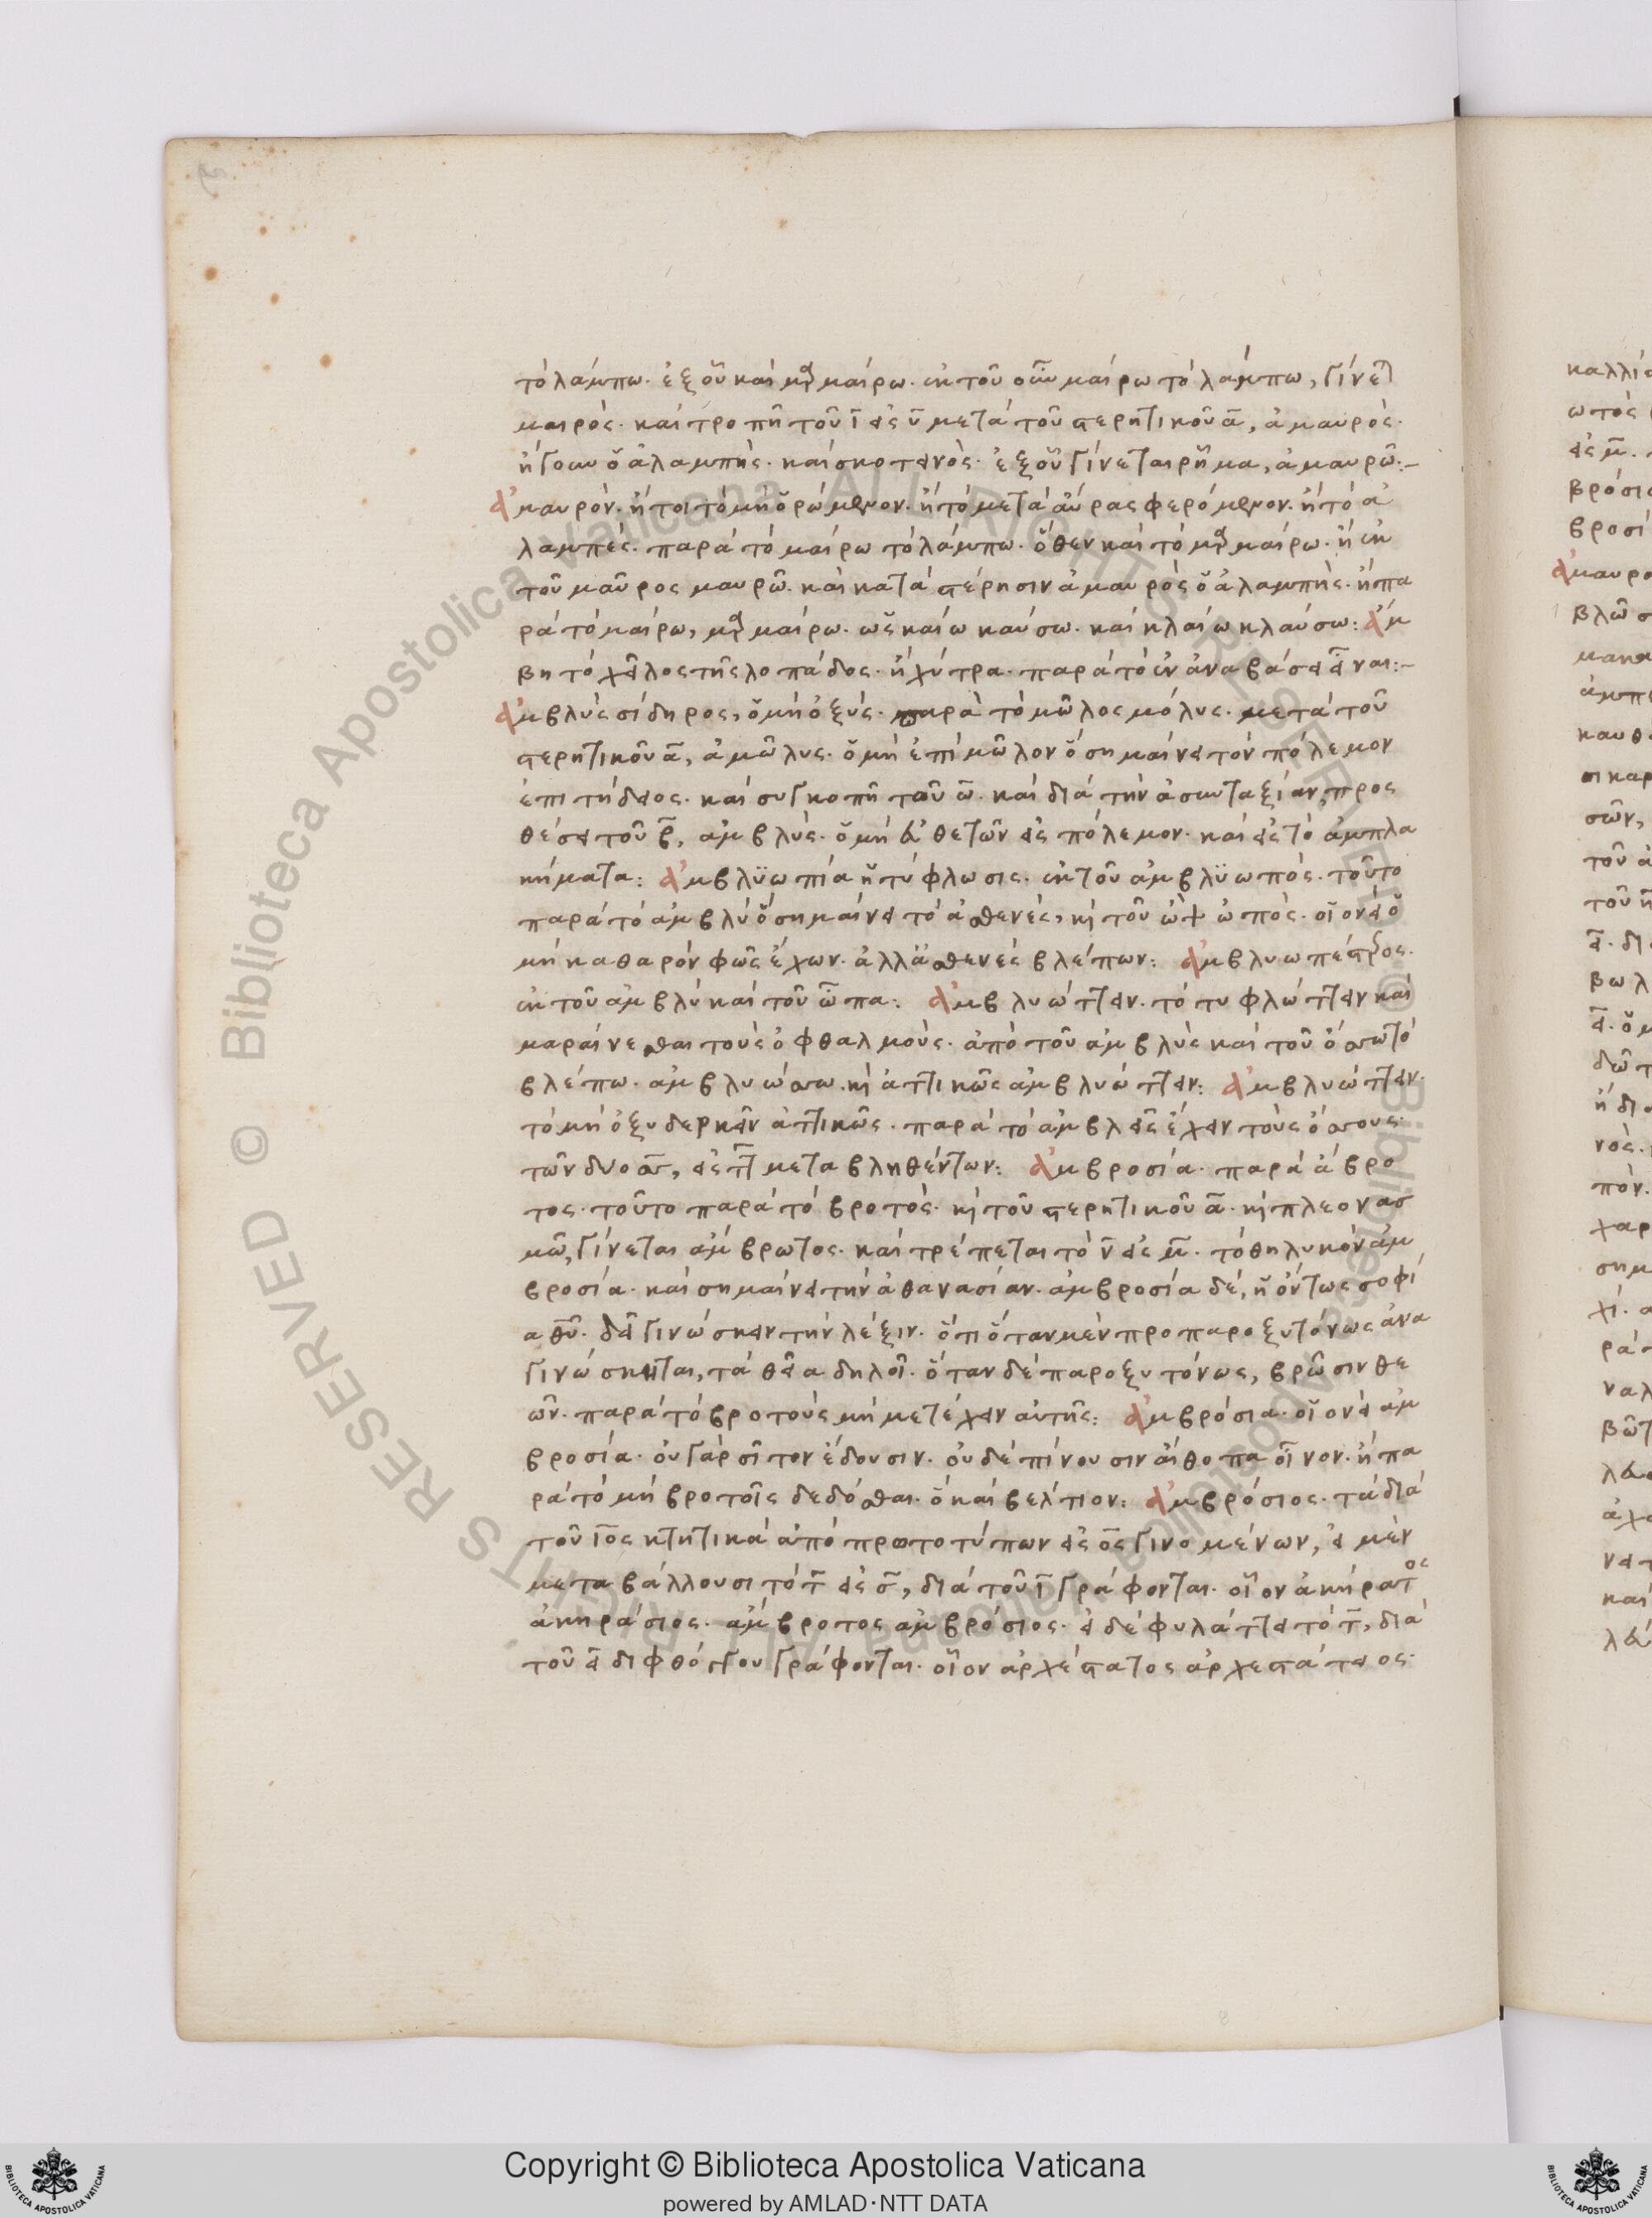 τὸ λάμπω. ἐξ οὗ καὶ μαρμαίρω. ἐκ τοῦ οὖν μαίρω τὸ λάμπω, γίνεται
μαιρός. καὶ τροπῇ τοῦ ῑ εἰς ῡ μετὰ τοῦ στερητικοῦ ᾱ, ἀμαυρός.
ἤγουν ὁ ἀλαμπής. καὶ σκοτεινός. ἐξ οὗ γίνεται ῥῆμα, ἀμαυρῶ:–
Ἀμαυρόν. ἤτοι τὸ μὴ ὁρώμενον. ἢ τὸ μετὰ αὔρας φερόμενον. ἢ τὸ ἀ
λαμπές. παρὰ τὸ μαίρω τὸ λάμπω. ὅθεν καὶ τὸ μαρμαίρω. ἢ ἐκ
τοῦ μαῦρος μαυρῶ. καὶ κατὰ στέρησιν ἀμαυρὸς ὁ ἀλαμπής. ἢ πα
ρὰ τὸ μαίρω, μαρμαίρω. ὡς καίω καύσω. καὶ κλαίω κλαύσω: Ἄμ
βη τὸ χεῖλος τῆς λοπάδος. ἢ χύτρα. παρὰ τὸ ἐν ἀναβάσει εἶναι:–
Ἀμβλὺς σίδηρος, ὁ μὴ ὀξύς. παρὰ τὸ μῶλος μόλυς. μετὰ τοῦ
στερητικοῦ ᾱ, ἀμῶλυς. ὁ μὴ ἐπὶ μῶλον ὃ σημαίνει τὸν πόλεμον
ἐπιτήδειος. καὶ συγκοπῇ τοῦ ω. καὶ διὰ τὴν ἀσυνταξίαν, προς
θέσει τοῦ β, ἀμβλύς. ὁ μὴ εὐθετῶν εἰς πόλεμον. καὶ εἰς τὸ ἀμπλα
κήματα: Ἀμβλϋωπία ἡ τύφλωσις. ἐκ τοῦ ἀμβλϋωπός. τοῦτο
παρὰ τὸ ἀμβλὺ ὃ σημαίνει τὸ ἀσθενές, καὶ τοῦ ὢψ ὠπός. οἱονεὶ ὁ
μὴ καθαρὸν φῶς ἔχων. ἀλλὰ ἀσθενὲς βλέπων: Ἀμβλυωπέστερος.
ἐκ τοῦ ἀμβλὺ καὶ τοῦ ὦπα: Ἀμβλυώττειν. τὸ τυφλώττειν καὶ
μαραίνεσθαι τοὺς ὀφθαλμούς. ἀπὸ τοῦ ἀμβλὺς καὶ τοῦ ὄσσω τὸ
βλέπω. ἀμβλυώσσω. καὶ ἀττικῶς ἀμβλυώττειν: Ἀμβλυώττειν.
τὸ μὴ ὀξυδερκεῖν ἀττικῶς. παρὰ τὸ ἀμβλεῖς ἔχειν τοὺς ὄσσους.
τῶν δυο σσ, εἰς ττ μεταβληθέντων: Ἀμβροσία. παρὰ ἄβρο
τος. τοῦτο παρὰ τὸ βροτός. καὶ τοῦ στερητικοῦ ᾱ. καὶ πλεονασ
μῶ, γίνεται ἄμβρωτος. καὶ τρέπεται τὸ ν εἰς μ. τὸ θηλυκὸν ἀμ
βροσία. καὶ σημαίνει τὴν ἀθανασίαν. ἀμβροσία δὲ, ἡ ὄντως σοφί
α θυ. δεῖ γινώσκειν τὴν λέξιν. ὅτι ὅταν μὲν προπαροξυτόνως ἀνα
γινώσκηται, τὰ θεῖα δηλοῖ. ὅταν δὲ παροξυτόνως, βρῶσιν θε
ῶν. παρὰ τὸ βροτοὺς μὴ μετέχειν αὐτῆς: Ἀμβρόσια. οἱονεὶ ἀμ
βροσία. οὐ γὰρ σῖτον ἔδουσιν. οὐδὲ πίνουσιν αἴθοπα οἶνον. ἢ πα
ρὰ τὸ μὴ βροτοῖς δεδόσθαι. ὃ καὶ βέλτιον: Ἀμβρόσιος. τὰ διὰ
τοῦ ῑος κτητικὰ ἀπὸ πρωτοτύπων εἰς ος γινομένων, εἰ μὲν
μεταβάλλουσι τὸ τ εἰς σ, διὰ τοῦ ῑ γράφονται. οἷον ἀκήρατος
ἀκηράσιος. ἄμβροτος ἀμβρόσιος. εἰ δὲ φυλάττει τὸ τ, διὰ
τοῦ ει διφθόγγου γράφονται. οἷον ἀρχέστατος ἀρχεστάτειος.
Copyright © Biblioteca Apostolica Vaticana
powered by AMLAD·NTT DATA